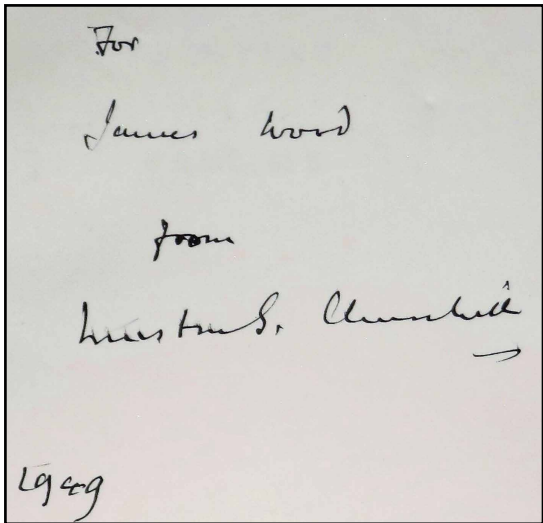 For
James Wood
from
Winston S. Churchill
1949